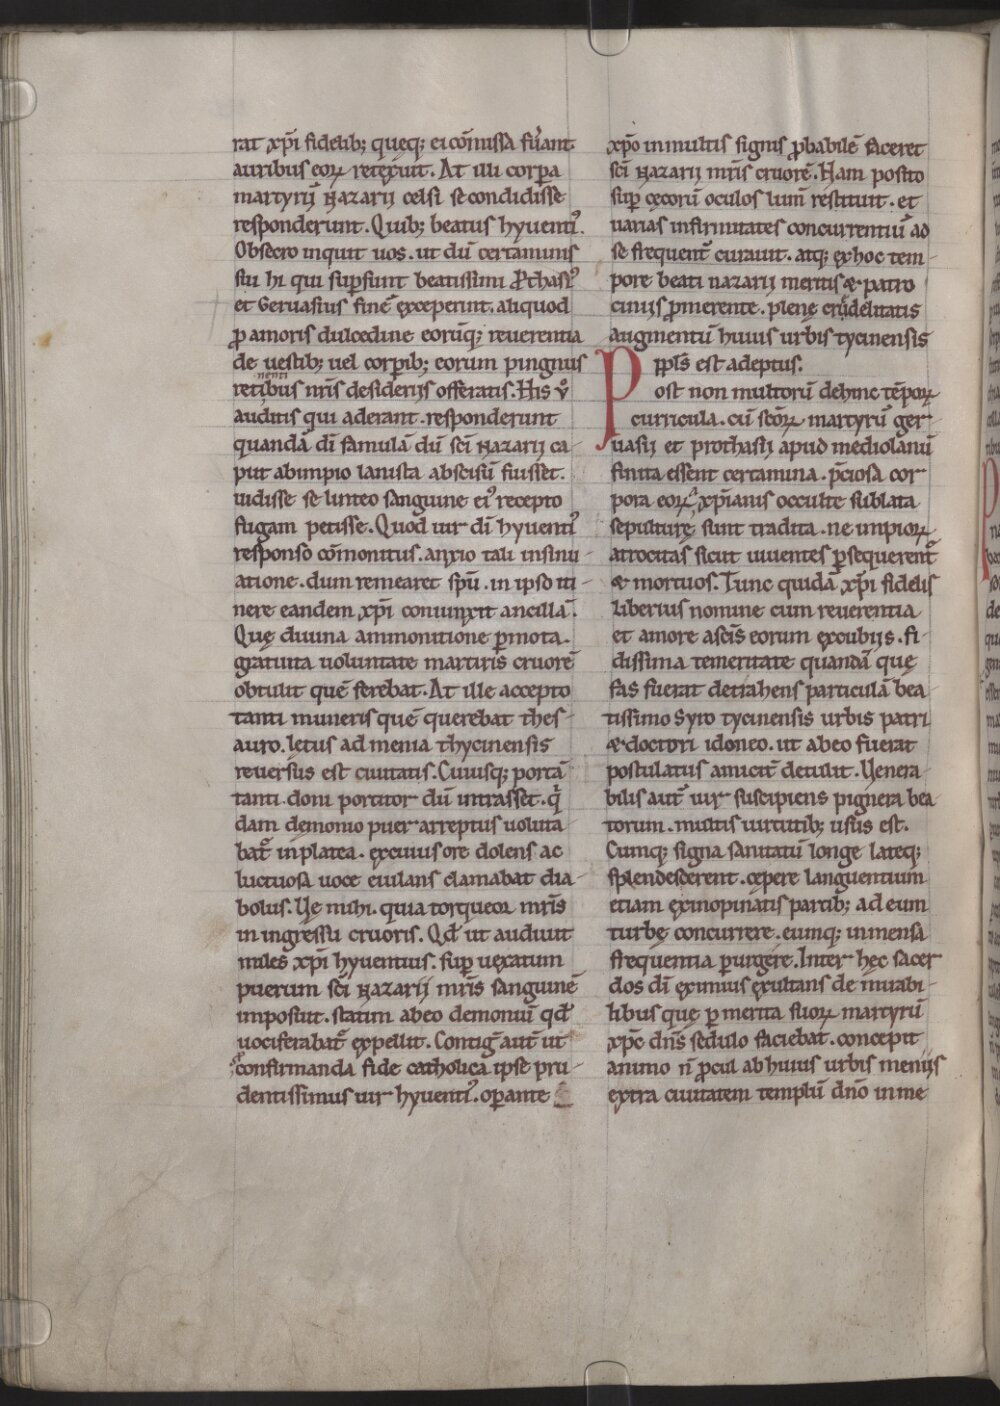 rat xp̄i fidelib; queq; ei cōmissa fuͥant
auribus eoꝝ retexuit. At illi corpa
martyrū Nazarij celsi se condidisse
responderunt. Quib; beatus hyuentiꝰ.
Obsecro inquit uos. ut dū certaminis
sui hi qui supsunt beatissimi ꝓthasiꝰ
et Geruasius finē exceperint. aliquod
ꝓ amoris dulcedine eorūq; reuerentia
de uestib; uel corpib; eorum pingnus
retinentibus nr̄is desiderijs offeratis. His ū
auditis qui aderant. responderunt
quandā dī famulā dū sc̄i Nazarij ca
put abimpio lanista abscisū fuisset.
uidisse se linteo sanguine eiꝰ recepto
fugam petisse. Quod uir dī hyuentiꝰ
responso cōmonitus. anxio tali insinu-
atione. dum remearet spū. in ipso iti-
nere eandem xp̄i coniunxit ancillā.
Quę diuina ammonitione ꝑmota.
gratuita uoluntate martiris cruorē
obtulit quē ferebat. At ille accepto
tanti muneris quē querebat thes-
auro. letus ad menia thycinensis
reuersus est ciuitatis. Cuiusq; portā
tanti doni portitor dū intrasset. qͥ
dam demonio puer arreptus uoluta
bat᷑ inplatea. excuius ore dolens ac
luctuosa uoce eiulans clamabat dia-
bolus. Ue mihi. quia torqueor mr̄is
in ingressu cruoris. Qd̄ ut audiuit
miles xp̄i hyuentius. sup uexatum
puerum sc̄i Nazarij mr̄is sanguinē
imposuit. statim abeo demoniū qd̄
uociferabat᷑ expellit. Contigͣ aut̄ ut
ꝓ confirmanda fide catholica ipse pru-
dentissimus uir hyuentiꝰ. opante
xp̄o inmultis signis ꝓbabilē faceret
sc̄i Nazarij mr̄is cruorē. Nam posito
sup cęcorū oculos lum̄ restituit. et
uarias infirmitates concurrentiū ad
se frequent᷑ curauit. atq; exhoc tem-
pore beati nazarij meritis & patro
cinijs ꝓmerente. plenę crudelitatis
augmentū huius urbis tycinensis
ppls̄ est adeptus.
Post non multorū dehinc tēpoꝝ
curricula. cū sc̄oꝝ martyrū ger-
uasij et prothasij apud mediolanū
finita essent certamina. p̄ciosa cor
pora eoꝝ xp̄ianis occulte sublata
sepulturę sunt tradita. ne impioꝝ
atrocitas sicut uiuentes ꝑsequerent᷑
& mortuos. Tunc quidā xp̄i fidelis
Liberius nomine cum reuerentia
et amore ascīs eorum excubijs. fi-
dissima temeritate quandā quę
fas fuerat detrahens particulā bea
tissimo Syro tycinensis urbis patri
& doctori idoneo. ut abeo fuerat
postulatus amicit᷑ detulit. Uenera
bilis aut᷑ uir suscipiens pignera bea
torum. multis uirtutib; usus est.
Cumq; signa sanitatū longe lateq;
splendescerent. cępere languentium
etiam exinopinatis partib; ad eum
turbę concurrere. eumq; inmensa
frequentia ꝑurgere. Inter hęc sacer
dos dī eximius exultans de mirabi-
libus quę ꝑ merita suoꝝ martyrū
xp̄c dn̄s sedulo faciebat. concepit
animo n̄ ꝓcul ab huius urbis menijs
extra ciuitatem templū dn̄o in me